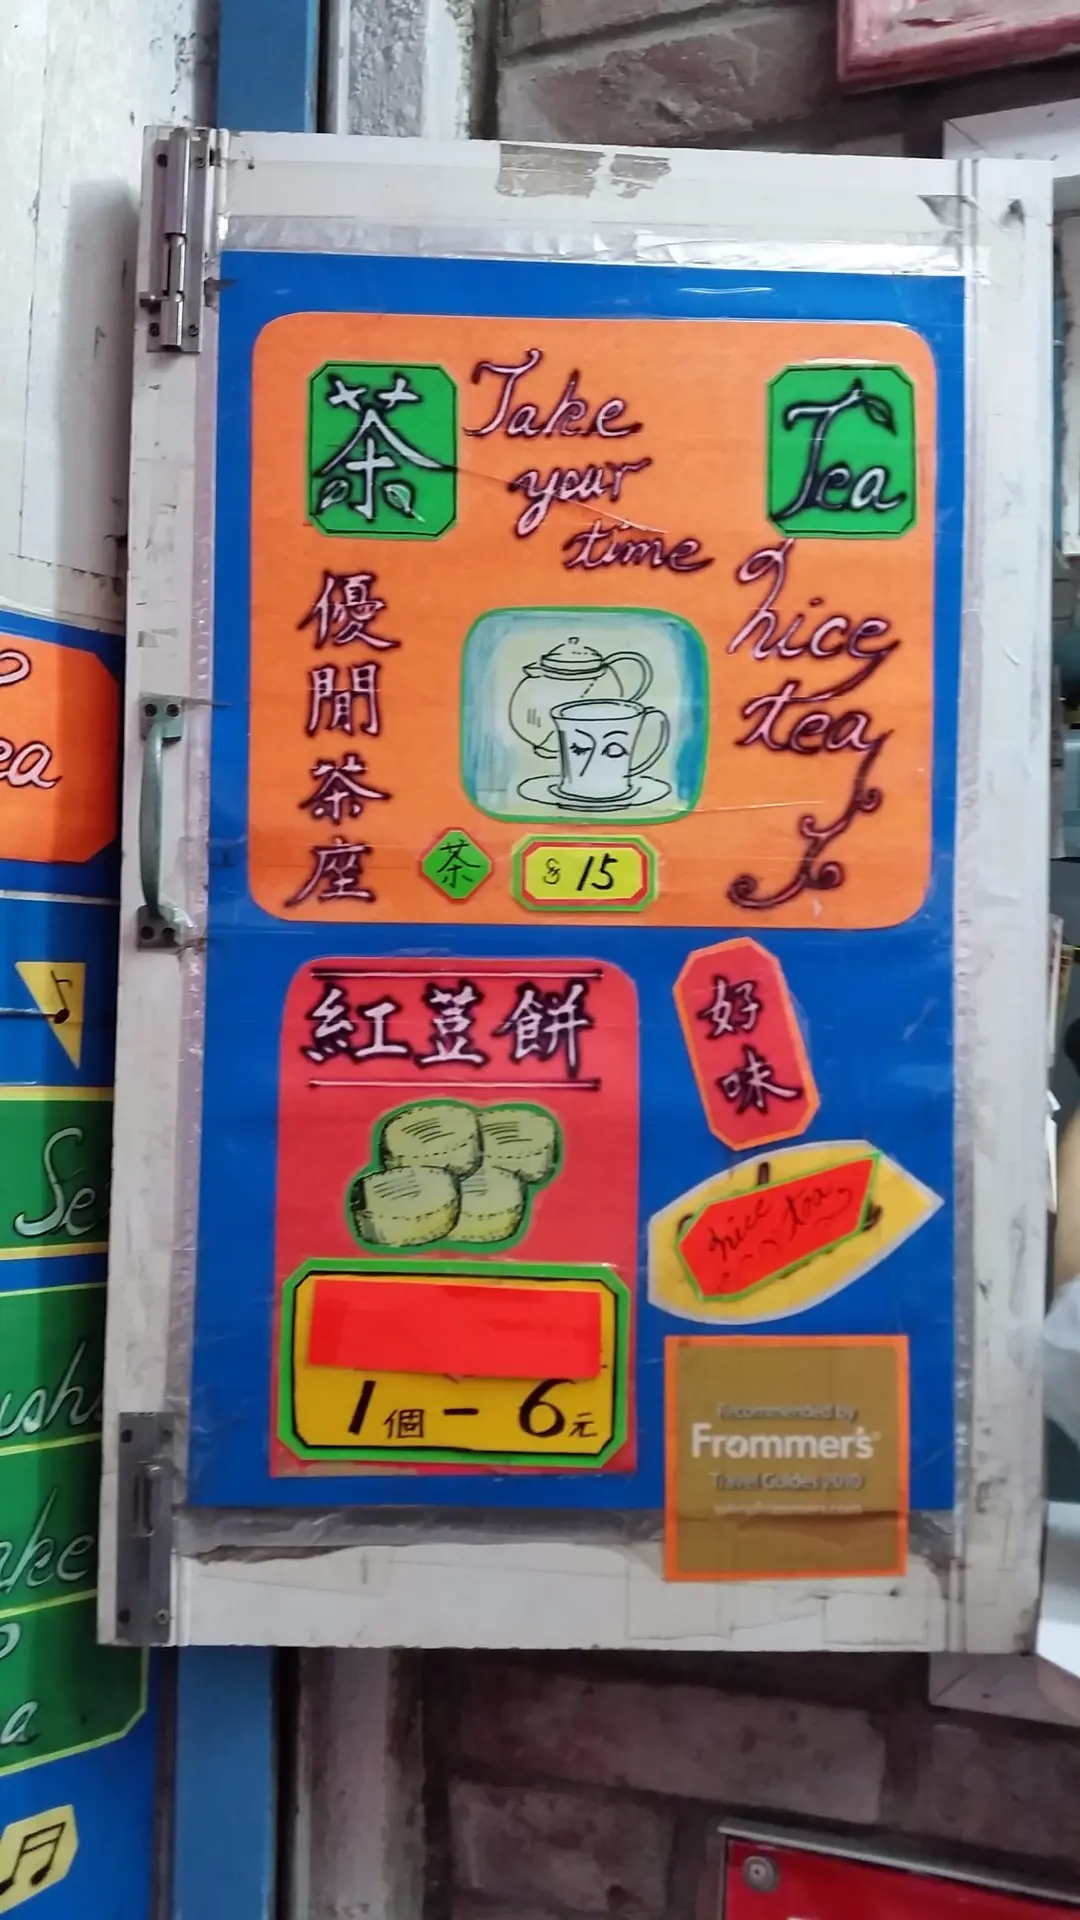 茶
Take
your
time
Tea
nice
tea
優閒茶座
茶
$ 15
紅荳餅
好味
nice tea
1個 - 6元
Recommended by
Frommer's
Travel Guides 2010
ea
Se
ush
ake
a